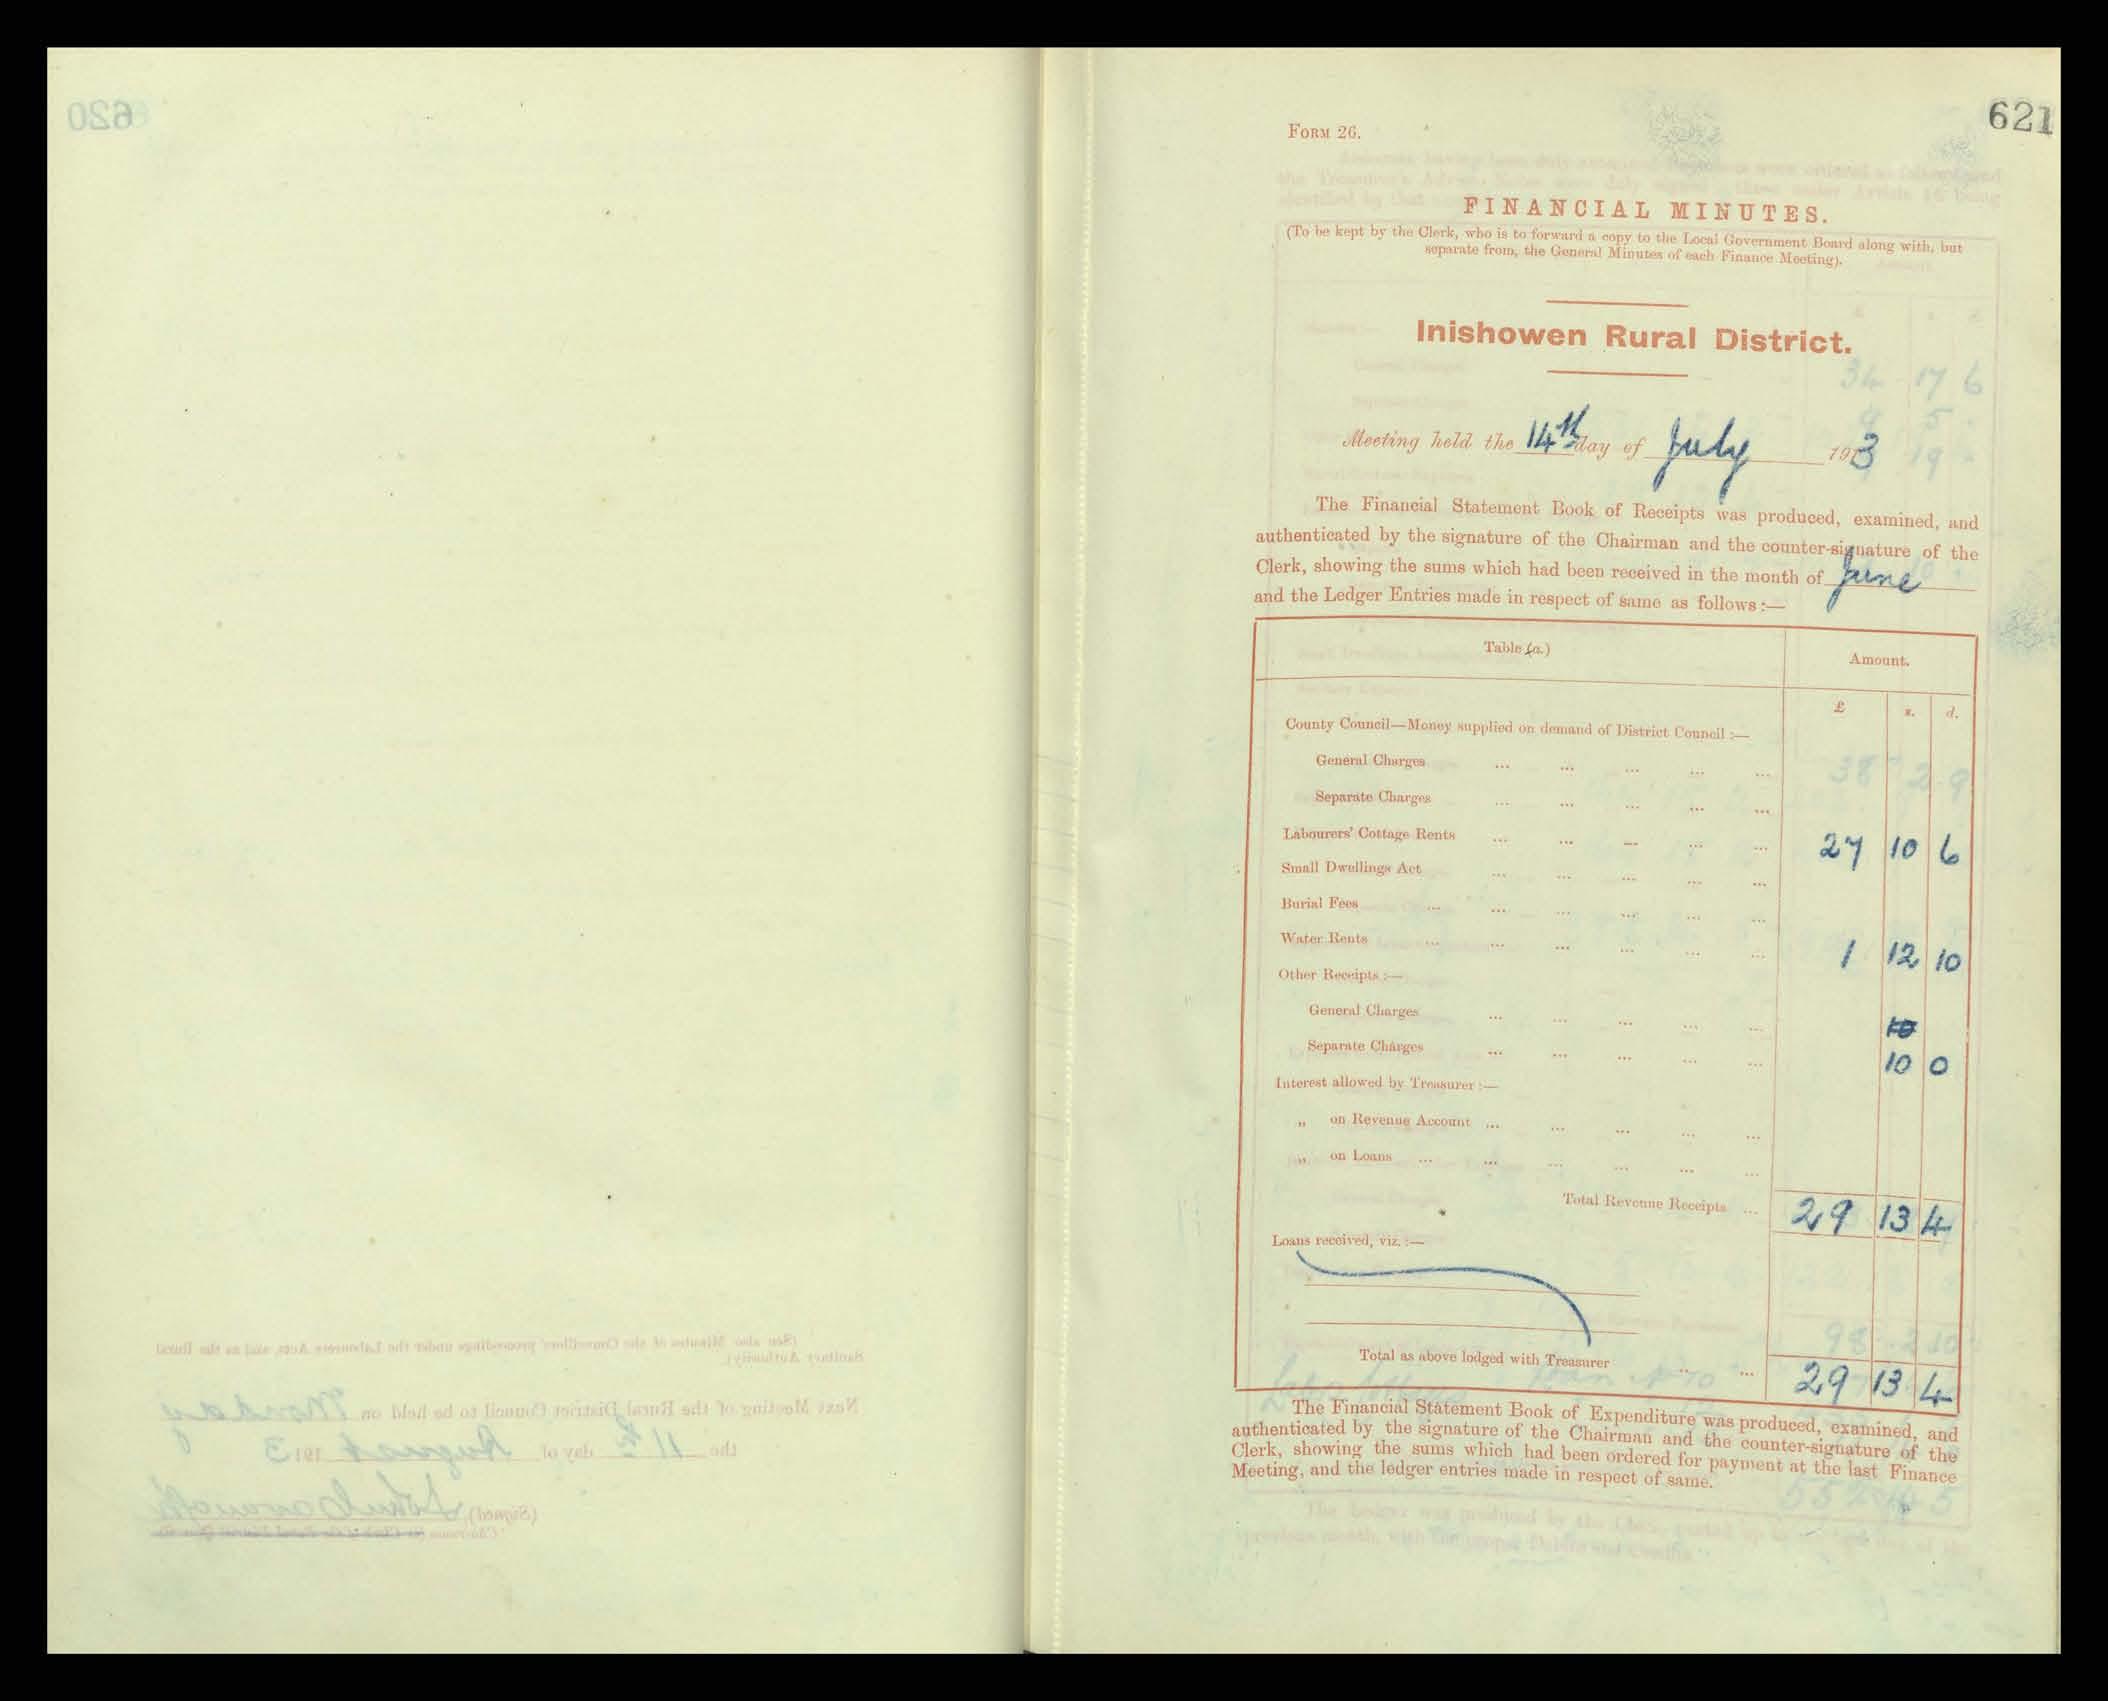 621
FORM 26.
FINANCIAL MINUTES.
(To be kept by the Clerk, who is to forward a copy to the Local Government Board along with, but
separate from, the General Minutes of each Finance Meeting).
Inishowen Rural District.
Meeting held the 14th day of July 1913
The Financial Statement Book of Receipts was produced, examined, and
authenticated by the signature of the Chairman and the counter-signature of the
Clerk, showing the sums which had been received in the month of June
and the Ledger Entries made in respect of same as follows :—
Table (a.) Amount.
£ s. d.
County Council—Money supplied on demand of District Council :—
General Charges ... ... ... ... ...
Separate Charges ... ... ... ... ...
Labourers' Cottage Rents ... ... ... ... ... 27 10 6
Small Dwellings Act ... ... ... ... ...
Burial Fees ... ... ... ... ... ...
Water Rents ... ... ... ... ... ... 1 12 10
Other Receipts :—
General Charges ... ... ... ... ... 10
Separate Charges ... ... ... ... ... 10 0
Interest allowed by Treasurer :—
„ on Revenue Account ... ... ... ... ...
„ on Loans ... ... ... ... ... ...
Total Revenue Receipts ... 29 13 4
Loans received, viz. :—
Total as above lodged with Treasurer ... ... 29 13 4
The Financial Statement Book of Expenditure was produced, examined, and
authenticated by the signature of the Chairman and the counter-signature of the
Clerk, showing the sums which had been ordered for payment at the last Finance
Meeting, and the ledger entries made in respect of same.
620
(See also Minutes of the Councillors' proceedings under the Labourers Acts, and as the Rural
Sanitary Authority).
Next Meeting of the Rural District Council to be held on Monday
the 11th day of August 1913
(Signed)